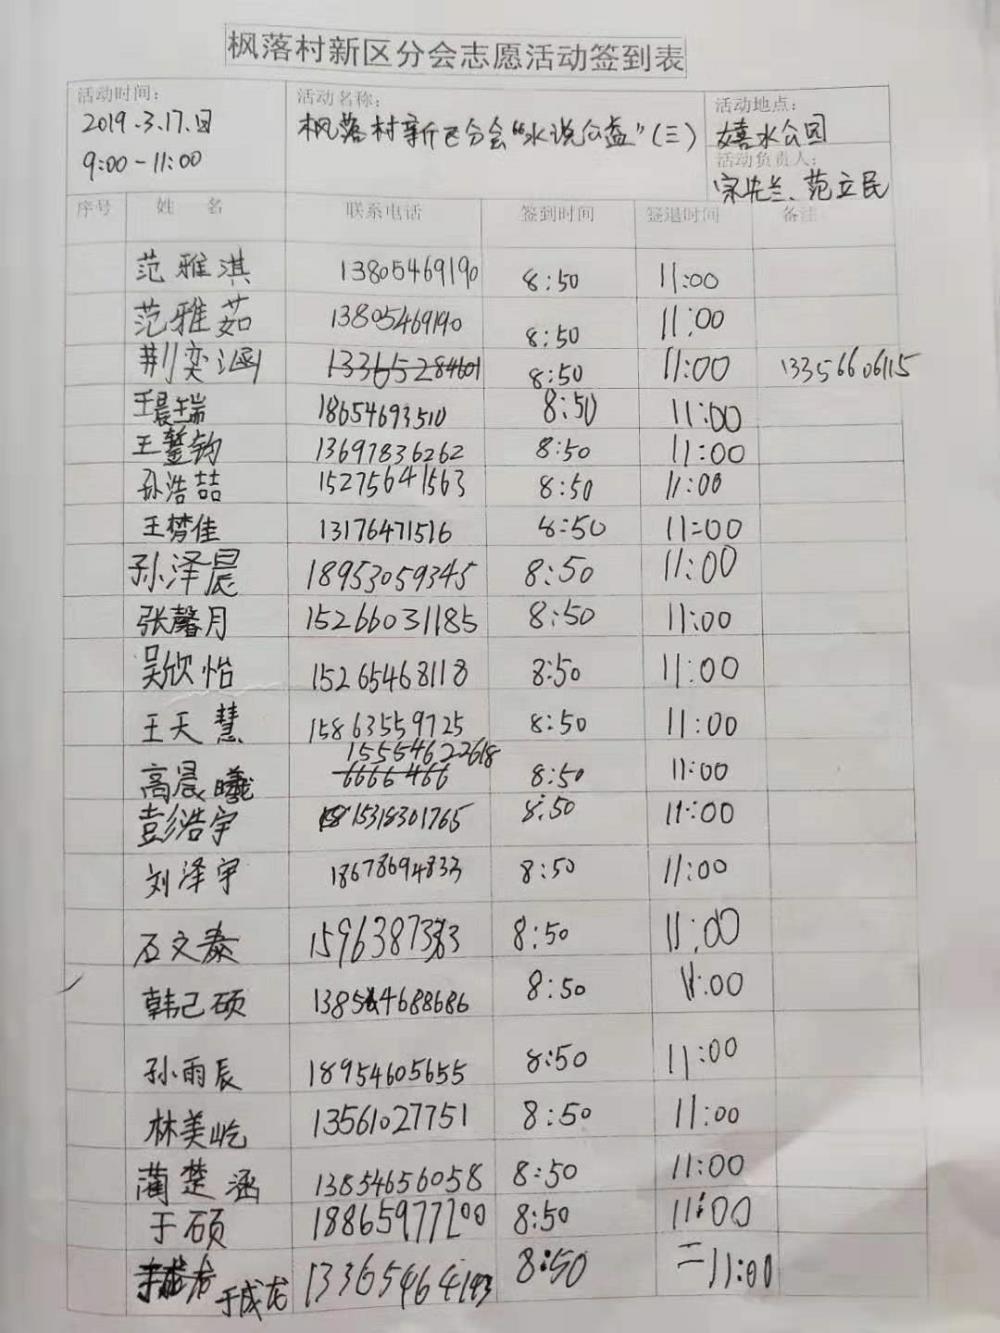 枫落村新区分会志愿活动签到表
活动时间： 活动名称： 活动地点：
2019.3.17.日 枫落村新区分会“水说公益”(三) 嬉水公园
9:00-11:00 活动负责人：
宋先兰、范立民
序号 姓 名 联系电话 签到时间 签退时间 备注
范雅淇 13805469190 8:50 11:00
范雅茹 13805469190 8:50 11:00
荆奕涵 13365284601 8:50 11:00 13356606115
王晨瑞 18654693510 8:50 11:00
王鏨钧 13697836262 8:50 11:00
孙浩喆 15275641563 8:50 11:00
王梦佳 13176471516 8:50 11:00
孙泽晨 18953059345 8:50 11:00
张馨月 15266031185 8:50 11:00
吴欣怡 15265468118 8:50 11:00
王天慧 15863559725 8:50 11:00
15554622618
高晨曦 6666466 8:50 11:00
彭浩宇 15318301765 8:50 11:00
刘泽宇 18678694833 8:50 11:00
石文泰 8:50 11:00
韩己硕 13854688686 8:50 11:00
孙雨辰 18954605655 8:50 11:00
林美屹 13561027751 8:50 11:00
蔺楚涵 13854656058 8:50 11:00
于硕 18865977200 8:50 11:00
于成龙 8:50 11:00